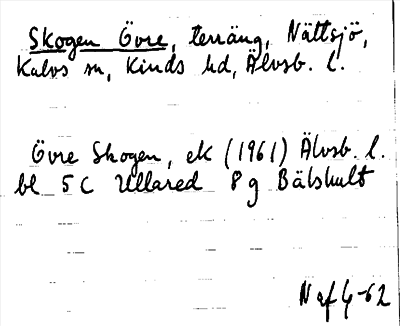 Skogen Övre, terräng, Nättsjö,
Kalvs sn, Kinds hd, Älvsb. l.
Övre Skogen, ek (1961) Älvsb. l.
bl 5 C Ullared 8 g Bälshult
N af G-62